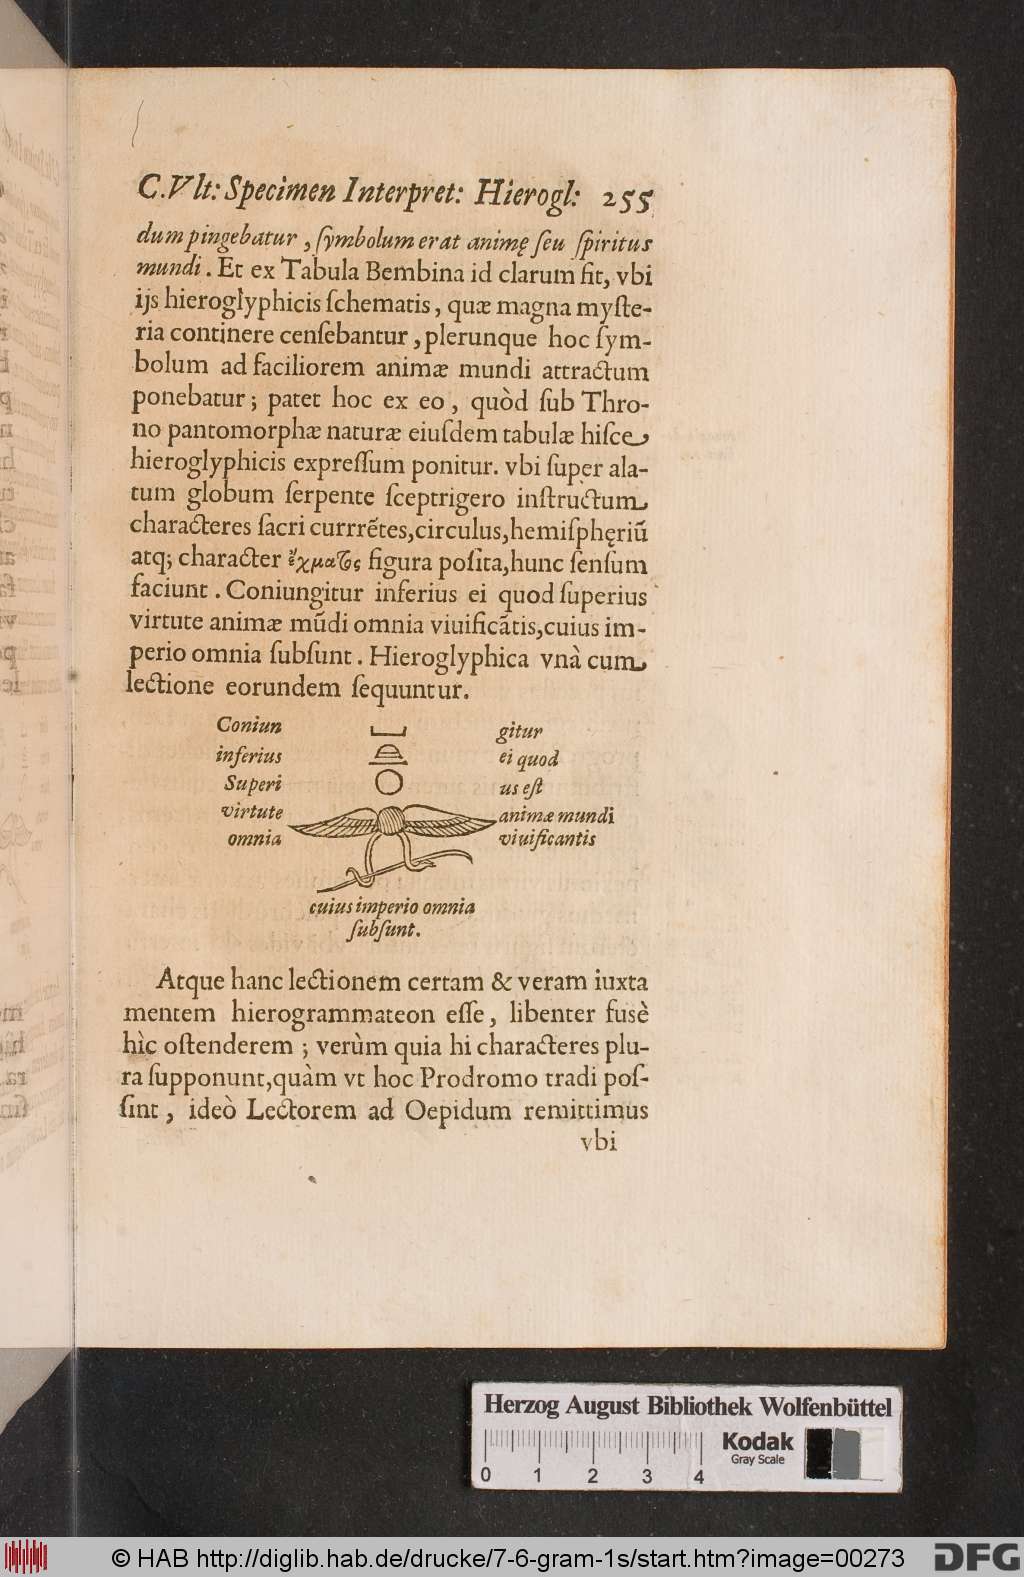 C. Vlt: Specimen Interpret: Hierogl: 255
dum pingebatur, ſymbolum erat animę ſeu ſpiritus
mundi. Et ex Tabula Bembina id clarum fit, vbi
ijs hieroglyphicis ſchematis, quæ magna myſte-
ria continere cenſebantur, plerunque hoc ſym-
bolum ad faciliorem animæ mundi attractum
ponebatur; patet hoc ex eo, quòd ſub Thro-
no pantomorphæ naturæ eiuſdem tabulæ hiſce
hieroglyphicis expreſſum ponitur. vbi ſuper ala-
tum globum ſerpente ſceptrigero inſtructum
characteres ſacri currrẽtes, circulus, hemiſphęriũ
atq; character ἔχματος figura poſita, hunc ſenſum
faciunt. Coniungitur inferius ei quod ſuperius
virtute animæ mũdi omnia viuificãtis, cuius im-
perio omnia ſubſunt. Hieroglyphica vnà cum
lectione eorundem ſequuntur.
Coniun gitur
inferius ei quod
Superi us eſt
virtute animæ mundi
omnia viuificantis
cuius imperio omnia
ſubſunt.
Atque hanc lectionem certam & veram iuxta
mentem hierogrammateon eſſe, libenter fusè
hìc oſtenderem; verùm quia hi characteres plu-
ra ſupponunt, quàm vt hoc Prodromo tradi poſ-
ſint, ideò Lectorem ad Oepidum remittimus
vbi
Herzog August Bibliothek Wolfenbüttel
Kodak
Gray Scale
0 1 2 3 4
© HAB http://diglib.hab.de/drucke/7-6-gram-1s/start.htm?image=00273
DFG